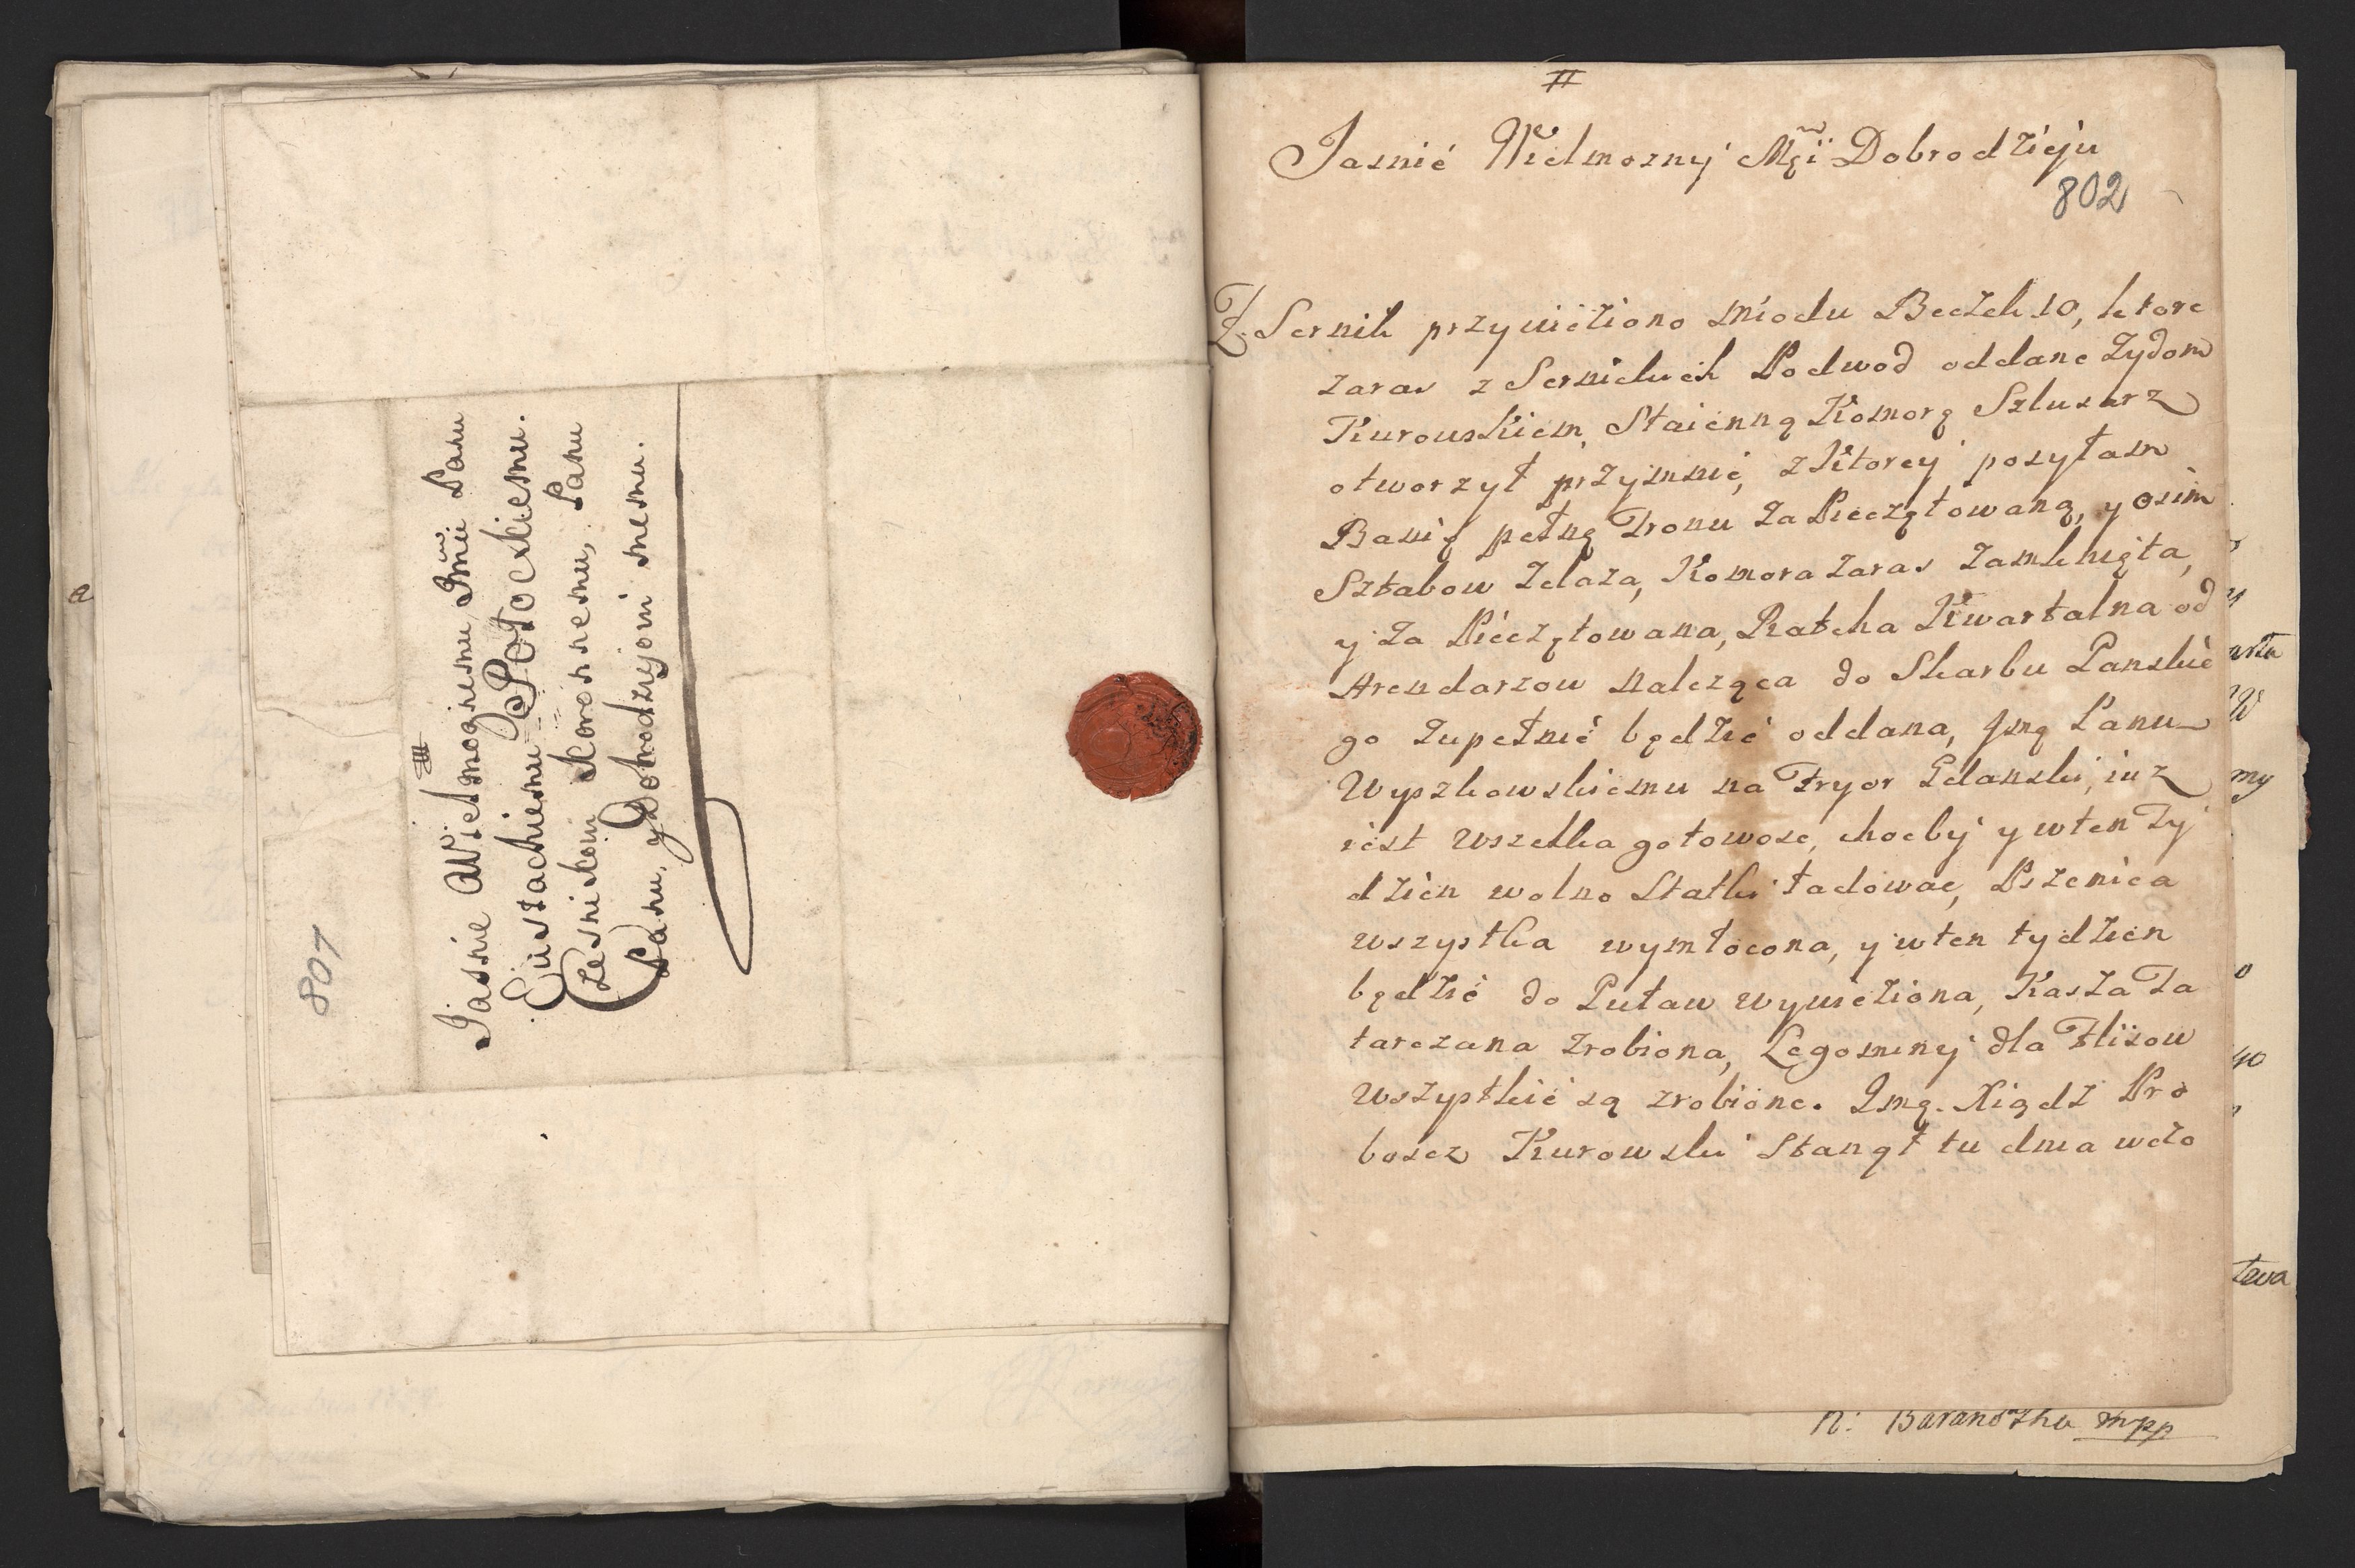 801
#
Jasnie Wielmoznemu Jmći Panu
Eustachiemu Potockiemu.
Czesnikowi Koronnemu, Panu
Panu, y Dobrodziejowi memu.
#
Jasnié Wielmozny Mći Dobrodzieju
802
Z Sernik przywieziono miodu Beczek 10, ktore
zaras z Sernickich Podwod oddane Zydom
Kurouskiem, Staienną Komorę Szlusarz
otworzył przymnie, z Ktorey posyłam
Banię pełną Tronu Zapieczętowaną, y osim
Sztabow Zelaza, Komora zaras Zamknięta,
y Zapieczętowana, Ratcha Kwartalna od
Arendarzow naleząca do Skarbu Panskié
go Zupełnié będzié oddana, Jmę Panu
Wyszkowskiemu na Fryor Gdanski, iuz
iest wszelka gotowosc, chocby y wten Ty
dzien wolno Statki ładowac, Pszenica
wszystka wymłocona, y wten tydzien
będzié do Puław wywieziona, Kasza Ta
tarczana Zrobiona, Legominy dla Flisow
wszystkié są zrobione. Jmę. Xiądz Pro
boscz Kurowski Stanął tu dnia wczo
n: Baranoszka mpp